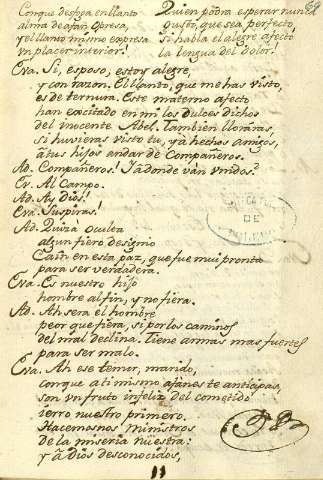 Conque se ahoga en llanto
alma de afan opresa,
y el llanto mismo expresa
un placer interior!
Quien podra esperar nunca
gusto, que sea perfecto,
si habla el alegre afecto
la lengua del dolor!
69
Eva. Si, esposo, estoy alegre,
y con razon. El llanto, que me has visto,
es de ternura. Este materno afecto
han excitado en mi los dulces dichos
del inocente Abel. Tambien lloraras,
si huvieras visto tu, ya hechos amigos,
à tus hijos andar de Compañeros.
Ad. Compañeros! Y adonde van unidos?
Ev. Al Campo.
Ad. Ay Dios!
Eva. Suspiras!
Ad. Quizà oculta
algun fiero designio
Cain en esta paz, que fue mui pronta
para ser verdadera.
Eva. Es nuestro hijo
hombre al fin, y no fiera.
Ad. Ah sera el hombre
peor que fiera, si por los caminos
del mal declina. Tiene armas mas fuertes
para ser malo.
Eva. Ah ese temor, marido,
con que a ti mismo afanes te anticipas,
son un fruto infeliz del cometido
ierro nuestro primero.
Hacemosnos ministros
de la miseria nuestra:
y à Dios desconocidos,